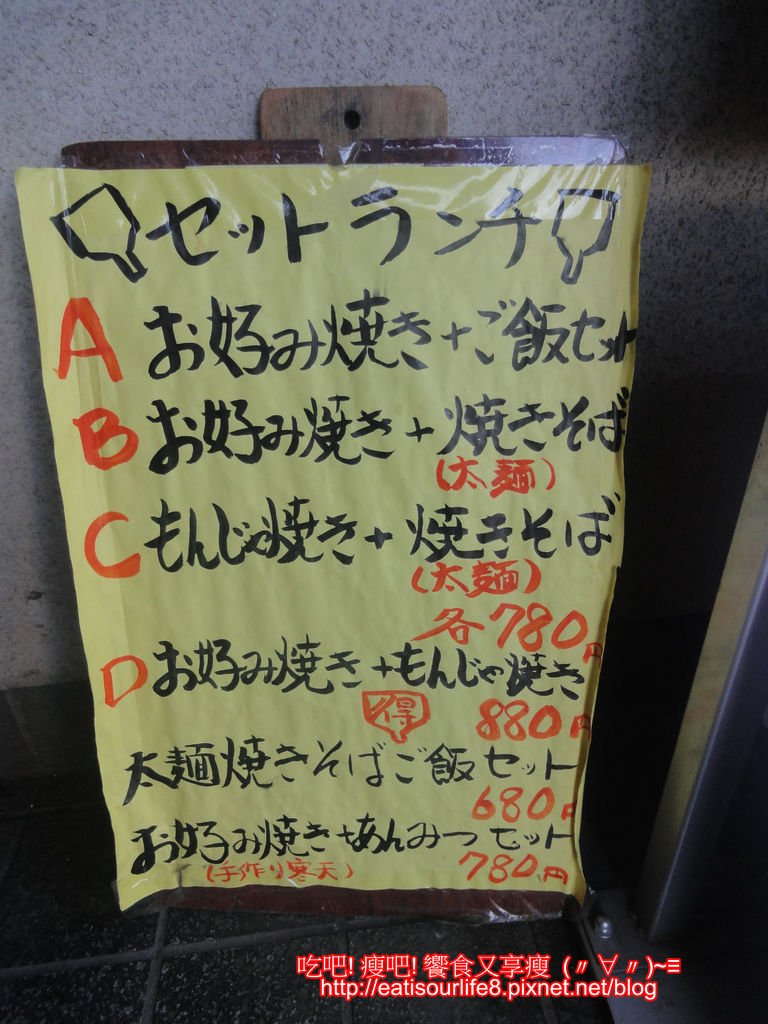 セットランチ
A お好み焼き+ご飯セット
B お好み焼き+焼きそば
(太麺)
C もんじゃ焼き+焼きそば
(太麺)
各780円
D お好み焼き+もんじゃ焼き
得 880円
太麺焼きそばご飯セット
680円
お好み焼き+あんみつセット
(手作り寒天) 780円
吃吧! 瘦吧! 饗食又享瘦 (〃∀〃)~≡
http://eatisourlife8.pixnet.net/blog